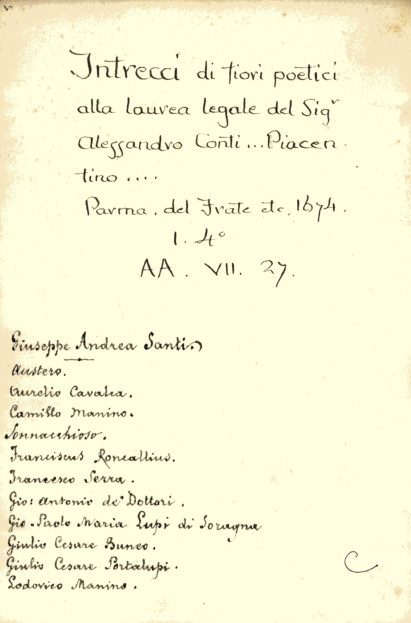 Intrecci di fiori poetici
alla laurea legale del Sigr
Alessandro Conti... Piacen-
tino ....
Parma. del Frate etc. 1674.
1. 4°
AA. VII. 27.
Giuseppe Andrea Santi.
Austero.
Aurelio Cavalca.
Camillo Manino.
Sonnacchioso.
Franciscus Roncallius.
Francesco Serra.
Gio: Antonio de' Dottori.
Gio. Paolo Maria Lupi di Soragna
Giulio Cesare Bunco.
Giulio Cesare Portalupi.
Lodovico Manino.
C